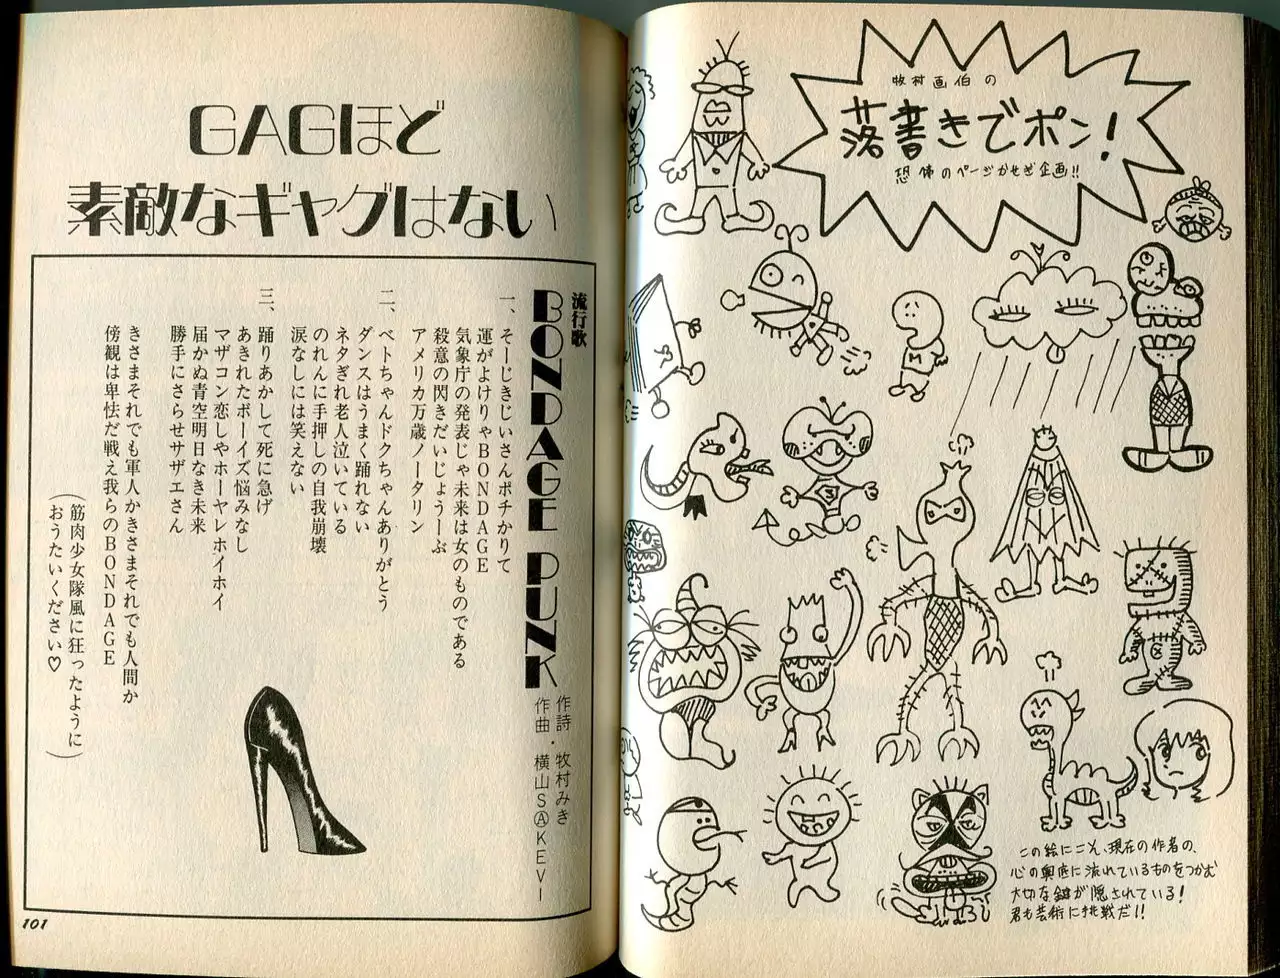 GAGほど
素敵なギャグはない
流行歌
BONDAGE PUNK
作詩・牧村みき
作曲・横山SⒶKEVI
一、そーじきじいさんポチかりて
運がよけりゃBONDAGE
気象庁の発表じゃ未来は女のものである
殺意の閃きだいじょうーぶ
アメリカ万歳ノータリン
二、ベトちゃんドクちゃんありがとう
ダンスはうまく踊れない
ネタぎれ老人泣いている
のれんに手押しの自我崩壊
涙なしには笑えない
三、踊りあかして死に急げ
あきれたボーイズ悩みなし
マザコン恋しやホーヤレホイホイ
届かぬ青空明日なき未来
勝手にさらせサザエさん
きさまそれでも軍人かきさまそれでも人間か
傍観は卑怯だ戦え我らのBONDAGE
(筋肉少女隊風に狂ったように
おうたいください♡)
101
牧村画伯の
落書きでポン!
恐怖のページかせぎ企画!!
M
3
この絵にこそ、現在の作者の、
心の奥底に流れているものをつかむ
大切な鍵が隠されている!
君も芸術に挑戦だ!!